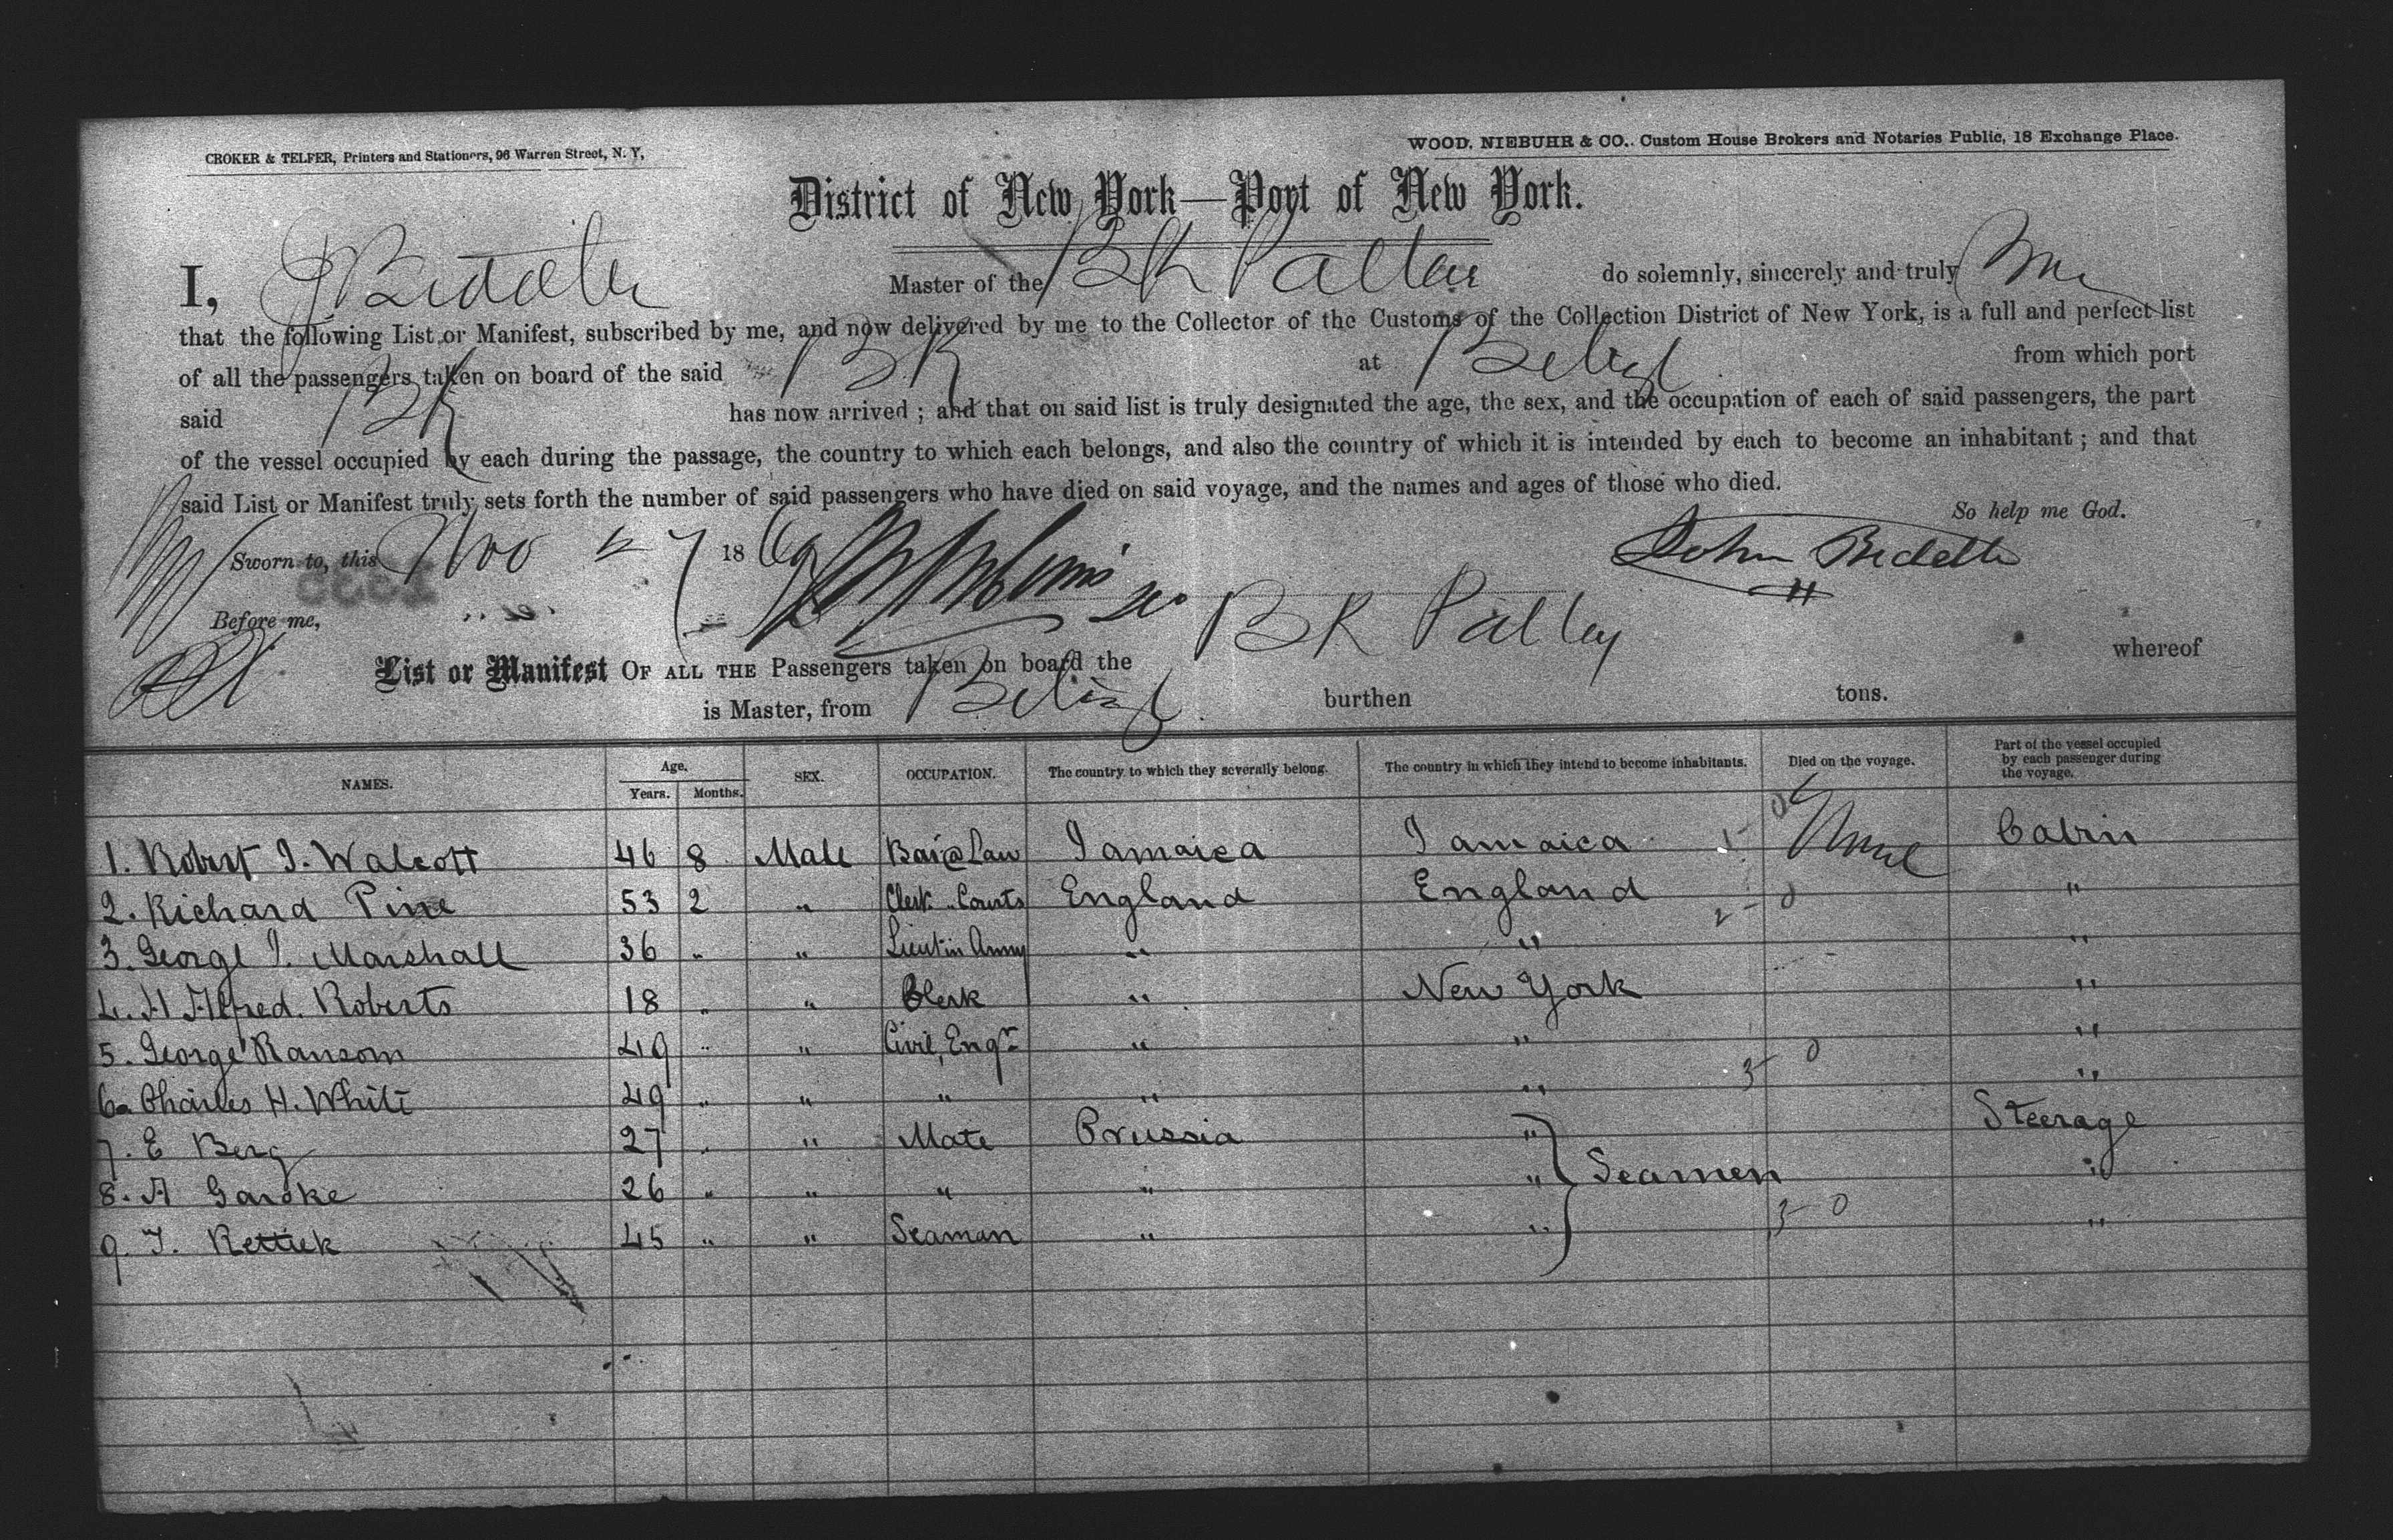 CROKER & TELFER, Printers and Stationers, 96 Warren Street, N. Y,
WOOD, NIEBUHR & CO.. Custom House Brokers and Notaries Public, 18 Exchange Place.
District of New York—Port of New York.
I, Master of the BK do solemnly, sincerely and truly
that the following List or Manifest, subscribed by me, and now delivered by me to the Collector of the Customs of the Collection District of New York, is a full and perfect list
of all the passengers taken on board of the said BK at Belize from which port
said BK has now arrived ; and that on said list is truly designated the age, the sex, and the occupation of each of said passengers, the part
of the vessel occupied by each during the passage, the country to which each belongs, and also the country of which it is intended by each to become an inhabitant ; and that
said List or Manifest truly sets forth the number of said passengers who have died on said voyage, and the names and ages of those who died.
So help me God.
Sworn to, this Nov 27 1869 John
Before me,
List or Manifest OF ALL THE Passengers taken on board the BK whereof
is Master, from Belize burthen tons.
NAMES. Age. Years. Months. SEX. OCCUPATION. The country to which they severally belong. The country in which they intend to become inhabitants. Died on the voyage. Part of the vessel occupied by each passenger during the voyage.
1. Robert I. Walcott 46 8 Male Bar@Law Jamaica Jamaica None Cabin
2. Richard Pine 53 2 " Clerk Courts England England "
3. George I. Marshall 36 " " Lieut in Army " " "
4. H Alfred. Roberts 18 " " Clerk " New York "
5. George Ransom 49 " " Civil, Engr " " "
6. Charles H. White 49 " " " " " "
7. E Berg 27 " " Mate Prussia " Steerage
8. A Gardke 26 " " " " " Seamen "
9. T. Rettick 45 " " Seaman " " "